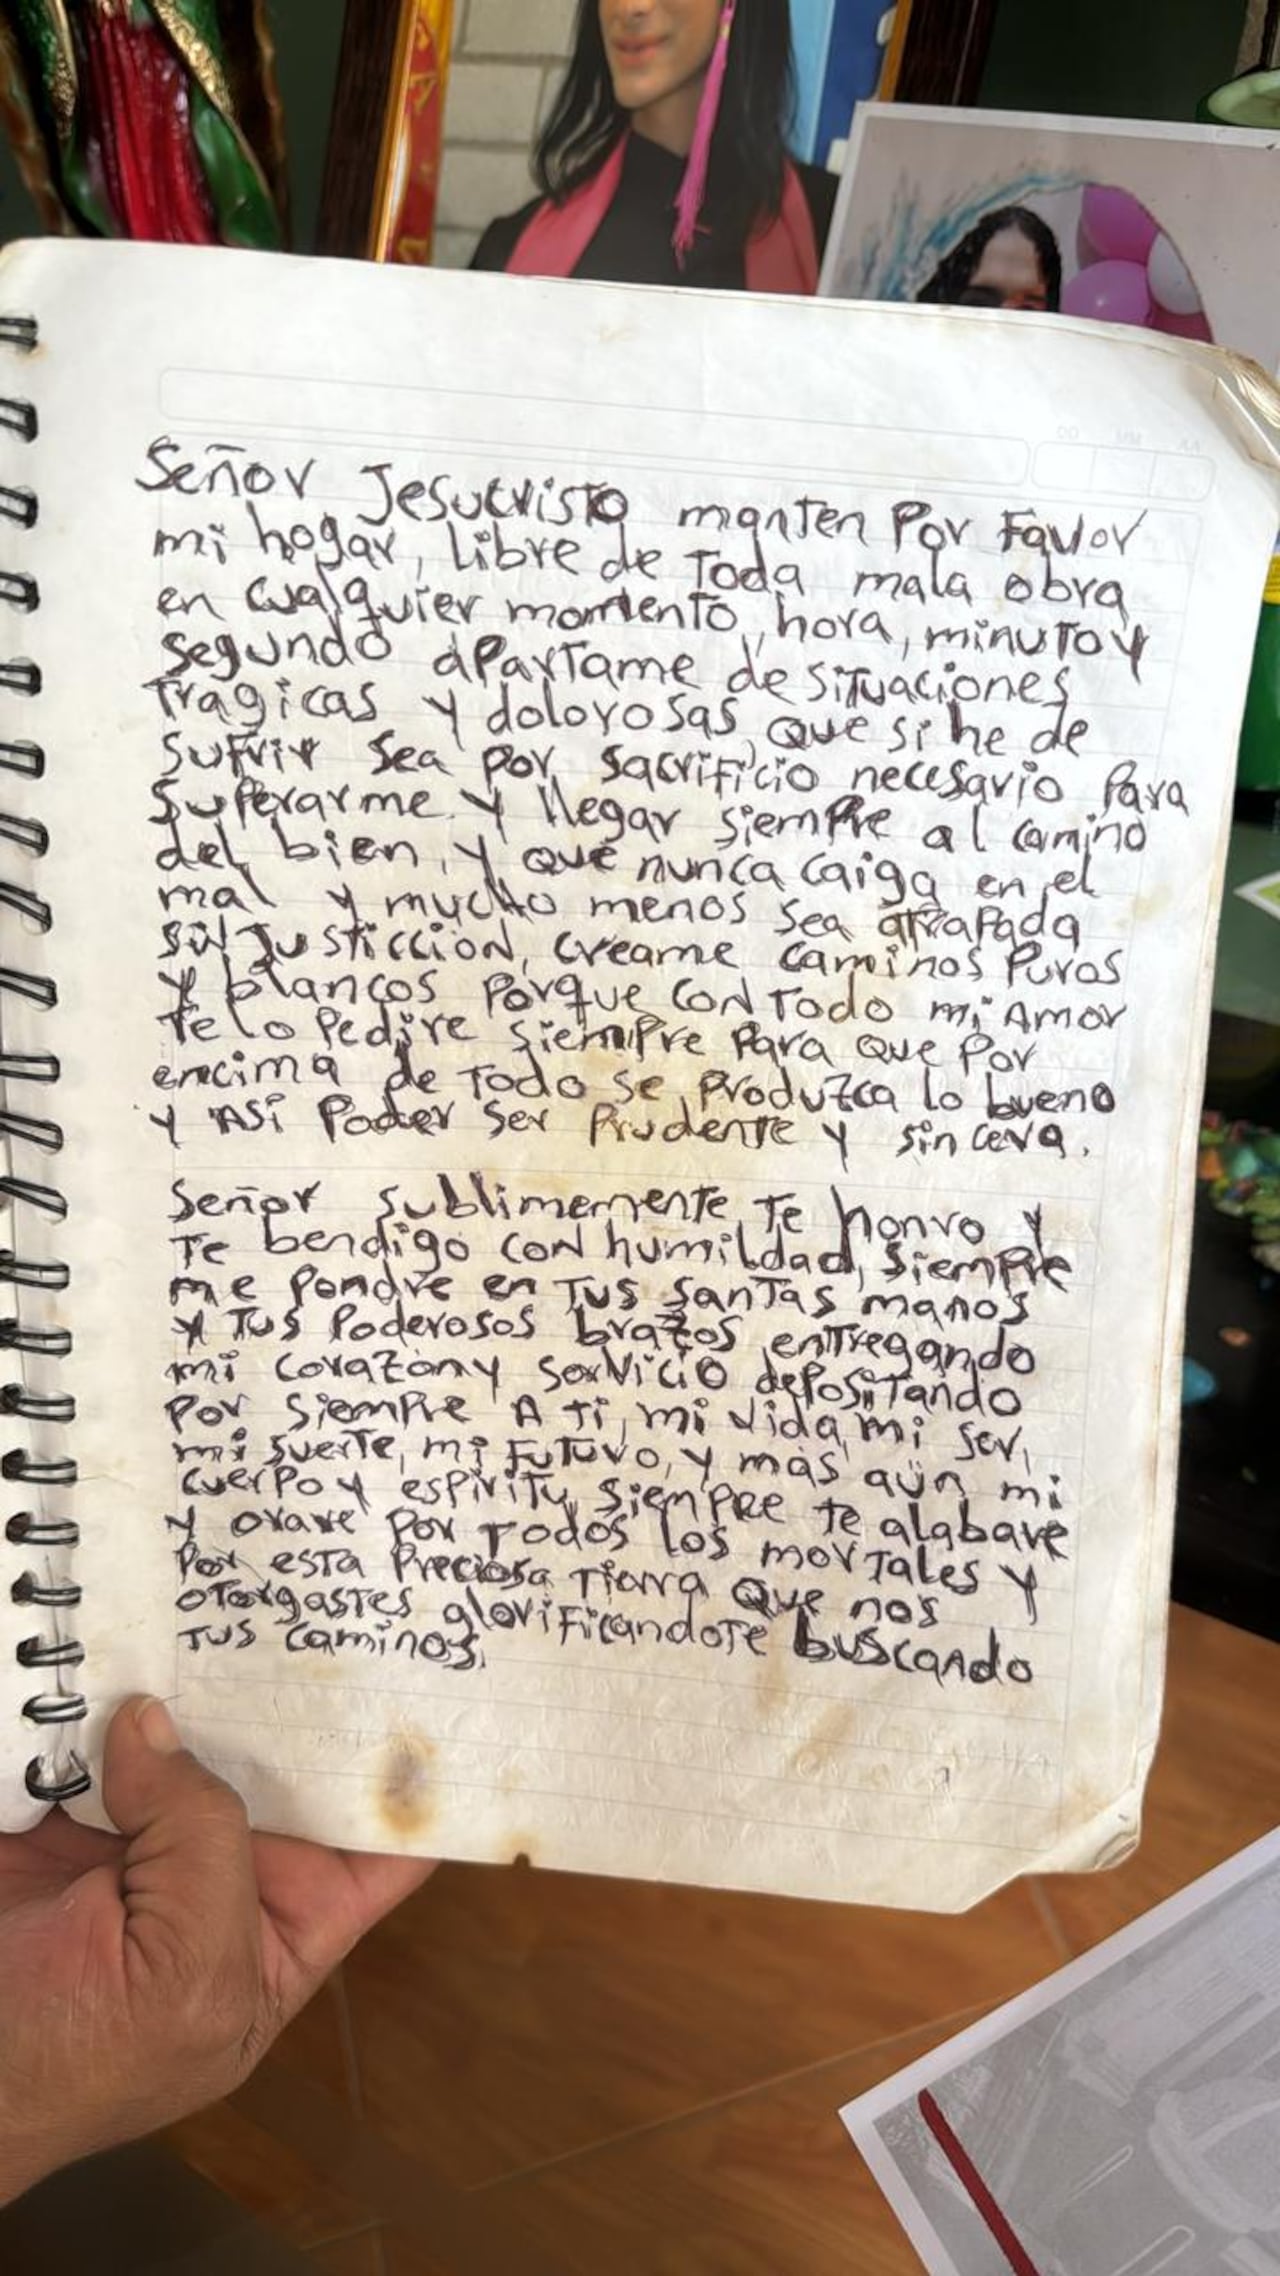 Señor Jesucristo manten Por Favor
mi hogar, libre de Toda mala obra
en cualquier momento, hora, minuto y
segundo apartame de situaciones
Tragicas y dolorosas, que si he de
sufrir sea por sacrificio necesario para
superarme y llegar siempre al camino
del bien, y que nunca caiga en el
mal y mucho menos sea atrapada
sin Justiccion, creame caminos Puros
y blancos porque con Todo mi Amor
Te lo Pedire siempre Para que por
encima de Todo se produzca lo bueno
y Asi Poder ser Prudente y sincera.
Señor sublimemente Te honro y
Te bendigo con humildad, siempre
me pondre en Tus santas manos
y Tus Poderosos brazos entregando
mi corazon y servicio depositando
por siempre A Ti, mi vida, mi ser,
mi suerte, mi Futuro, y más aún mi
cuerpo y espiritu, siempre te alabare
y orare por Todos los morTales y
Por esta Preciosa Tierra Que nos
otorgastes glorificandote buscando
Tus caminos.